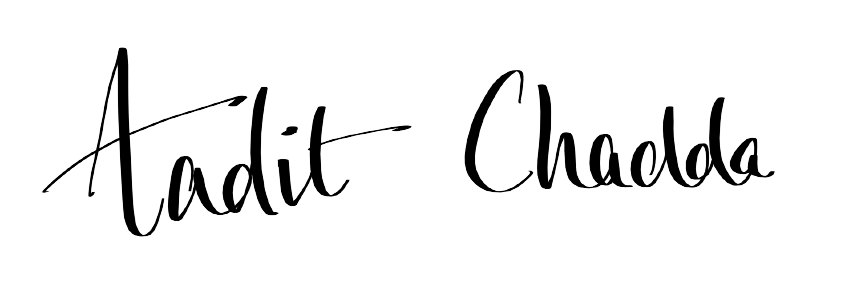 Aadit Chadda